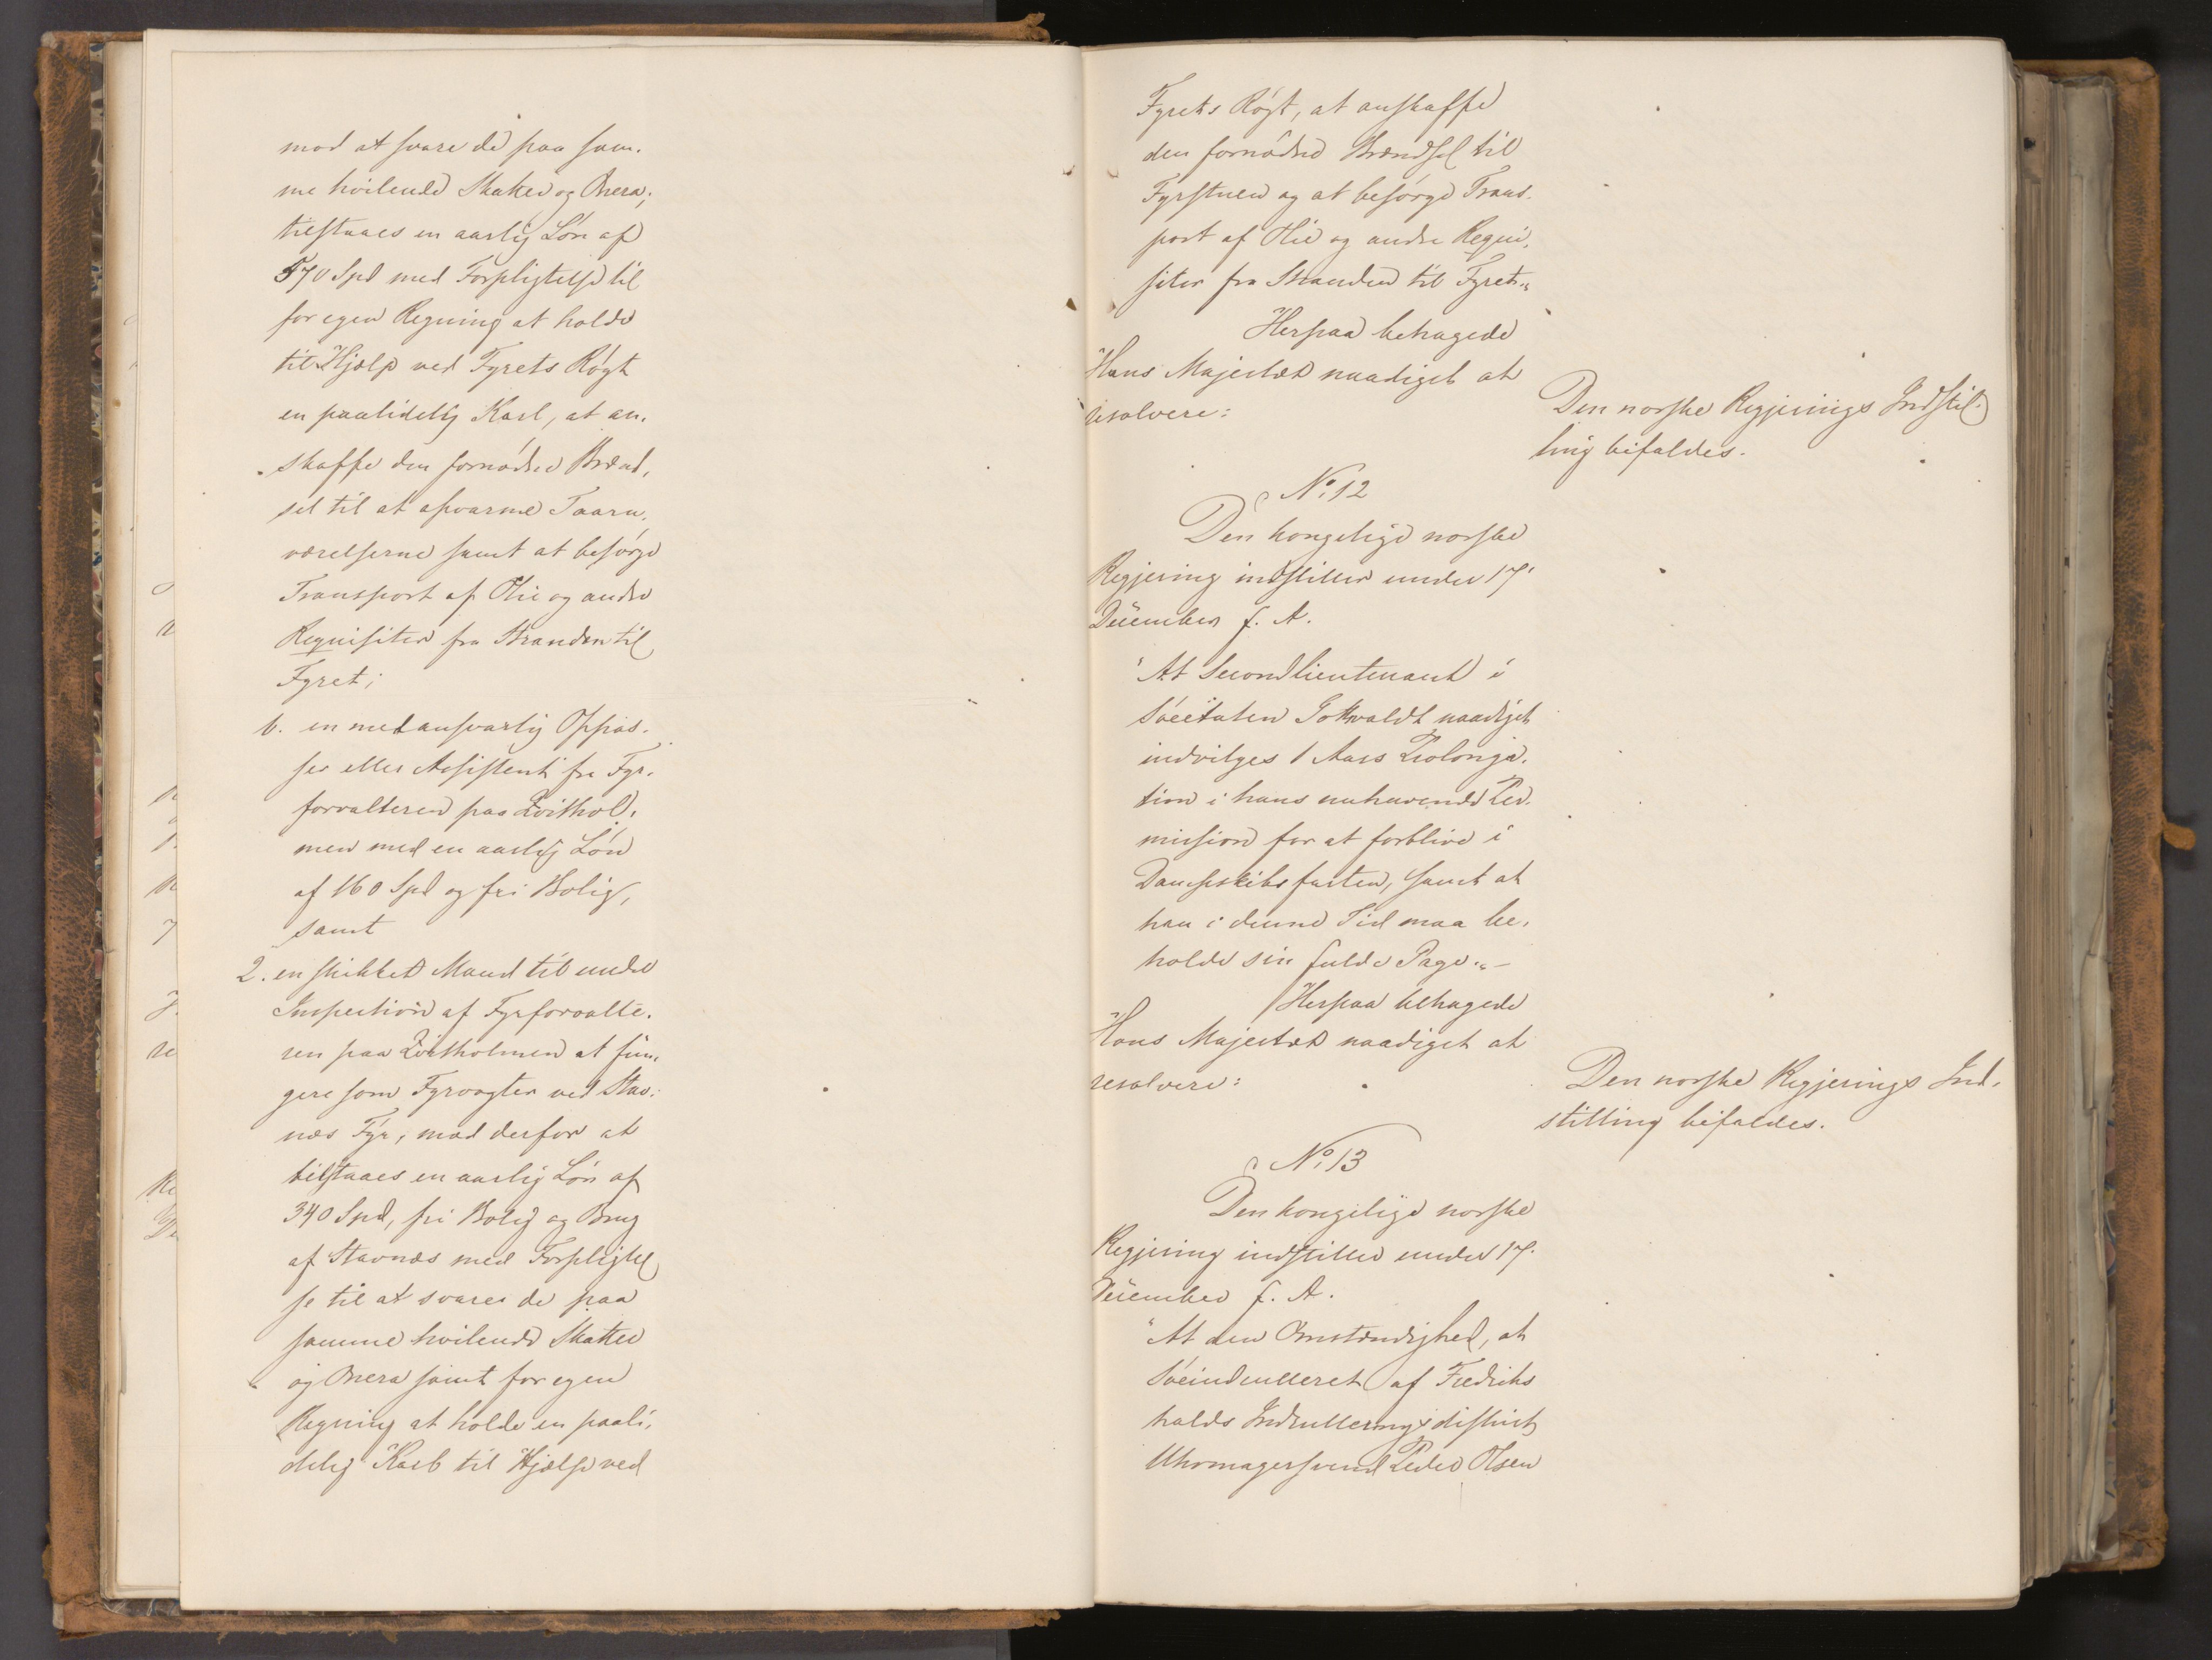 mod at svare de paa sam-
me hvilende Skatter og Onera,
tilstaaes en aarlig Løn af
570 Spd med Forpligtelse til
for egen Regning at holde
til Hjelp ved Fyrets Røgt
en paalidelig Karl, at an-
skaffe den fornødne Brænd-
sel til at opvarme Taarn-
værelserne samt at besørge
Transport af Olie og andre
Requisiter fra Stranden til
Fyret;
b. en medansvarlig Oppas-
ser eller Assistent for Fyr-
forvalteren paa Qvithol-
men med en aarlig Løn
af 160 Spd og fri Bolig,
samt
2. en skikket Mand til under
Inspection af Fyrforvalte-
ren paa Qvitholmen at fun-
gere som Fyrvogter ved Stav-
næs Fyr, mod derfor at
tilstaaes en aarlig Løn af
340 Spd, fri Bolig og Brug
af Stavnæs med Forpligtel-
se til at svare de paa
samme hvilende Skatter
og Onera samt for egen
Regning at holde en paali-
delig Karl til Hjælp ved
Fyrets Røgt, at anskaffe
den fornødne Brændsel til
Fyrstuen og at besørge Trans-
port af Olie og andre Requi-
siter fra Stranden til Fyret."
Herpaa behagede
Hans Majestæt naadigst at
resolvere:
Den norske Regjerings Indstil-
ling bifaldes.
No. 12
Den kongelige norske
Regjering indstiller under 17.
December f. A.
"At Secondlieutenant i
Søeetaten Gottwaldt naadigst
indvilges 1 Aars Prolonga-
tion i hans nuhavende Per-
mission for at forblive i
Dampskibsfarten, samt at
han i denne Tid maa be-
holde sin fulde Gage."-
Herpaa behagede
Hans Majestæt naadigst at
resolvere:
Den norske Regjerings Ind-
stilling bifaldes.
No. 13
Den kongelige norske
Regjering indstiller under 17.
December f. A.
"At den Omstændighed, at
Søeindrulleret af Fredriks
halds Indrulleringsdistrict
Uhrmagersvend Peder Olsen